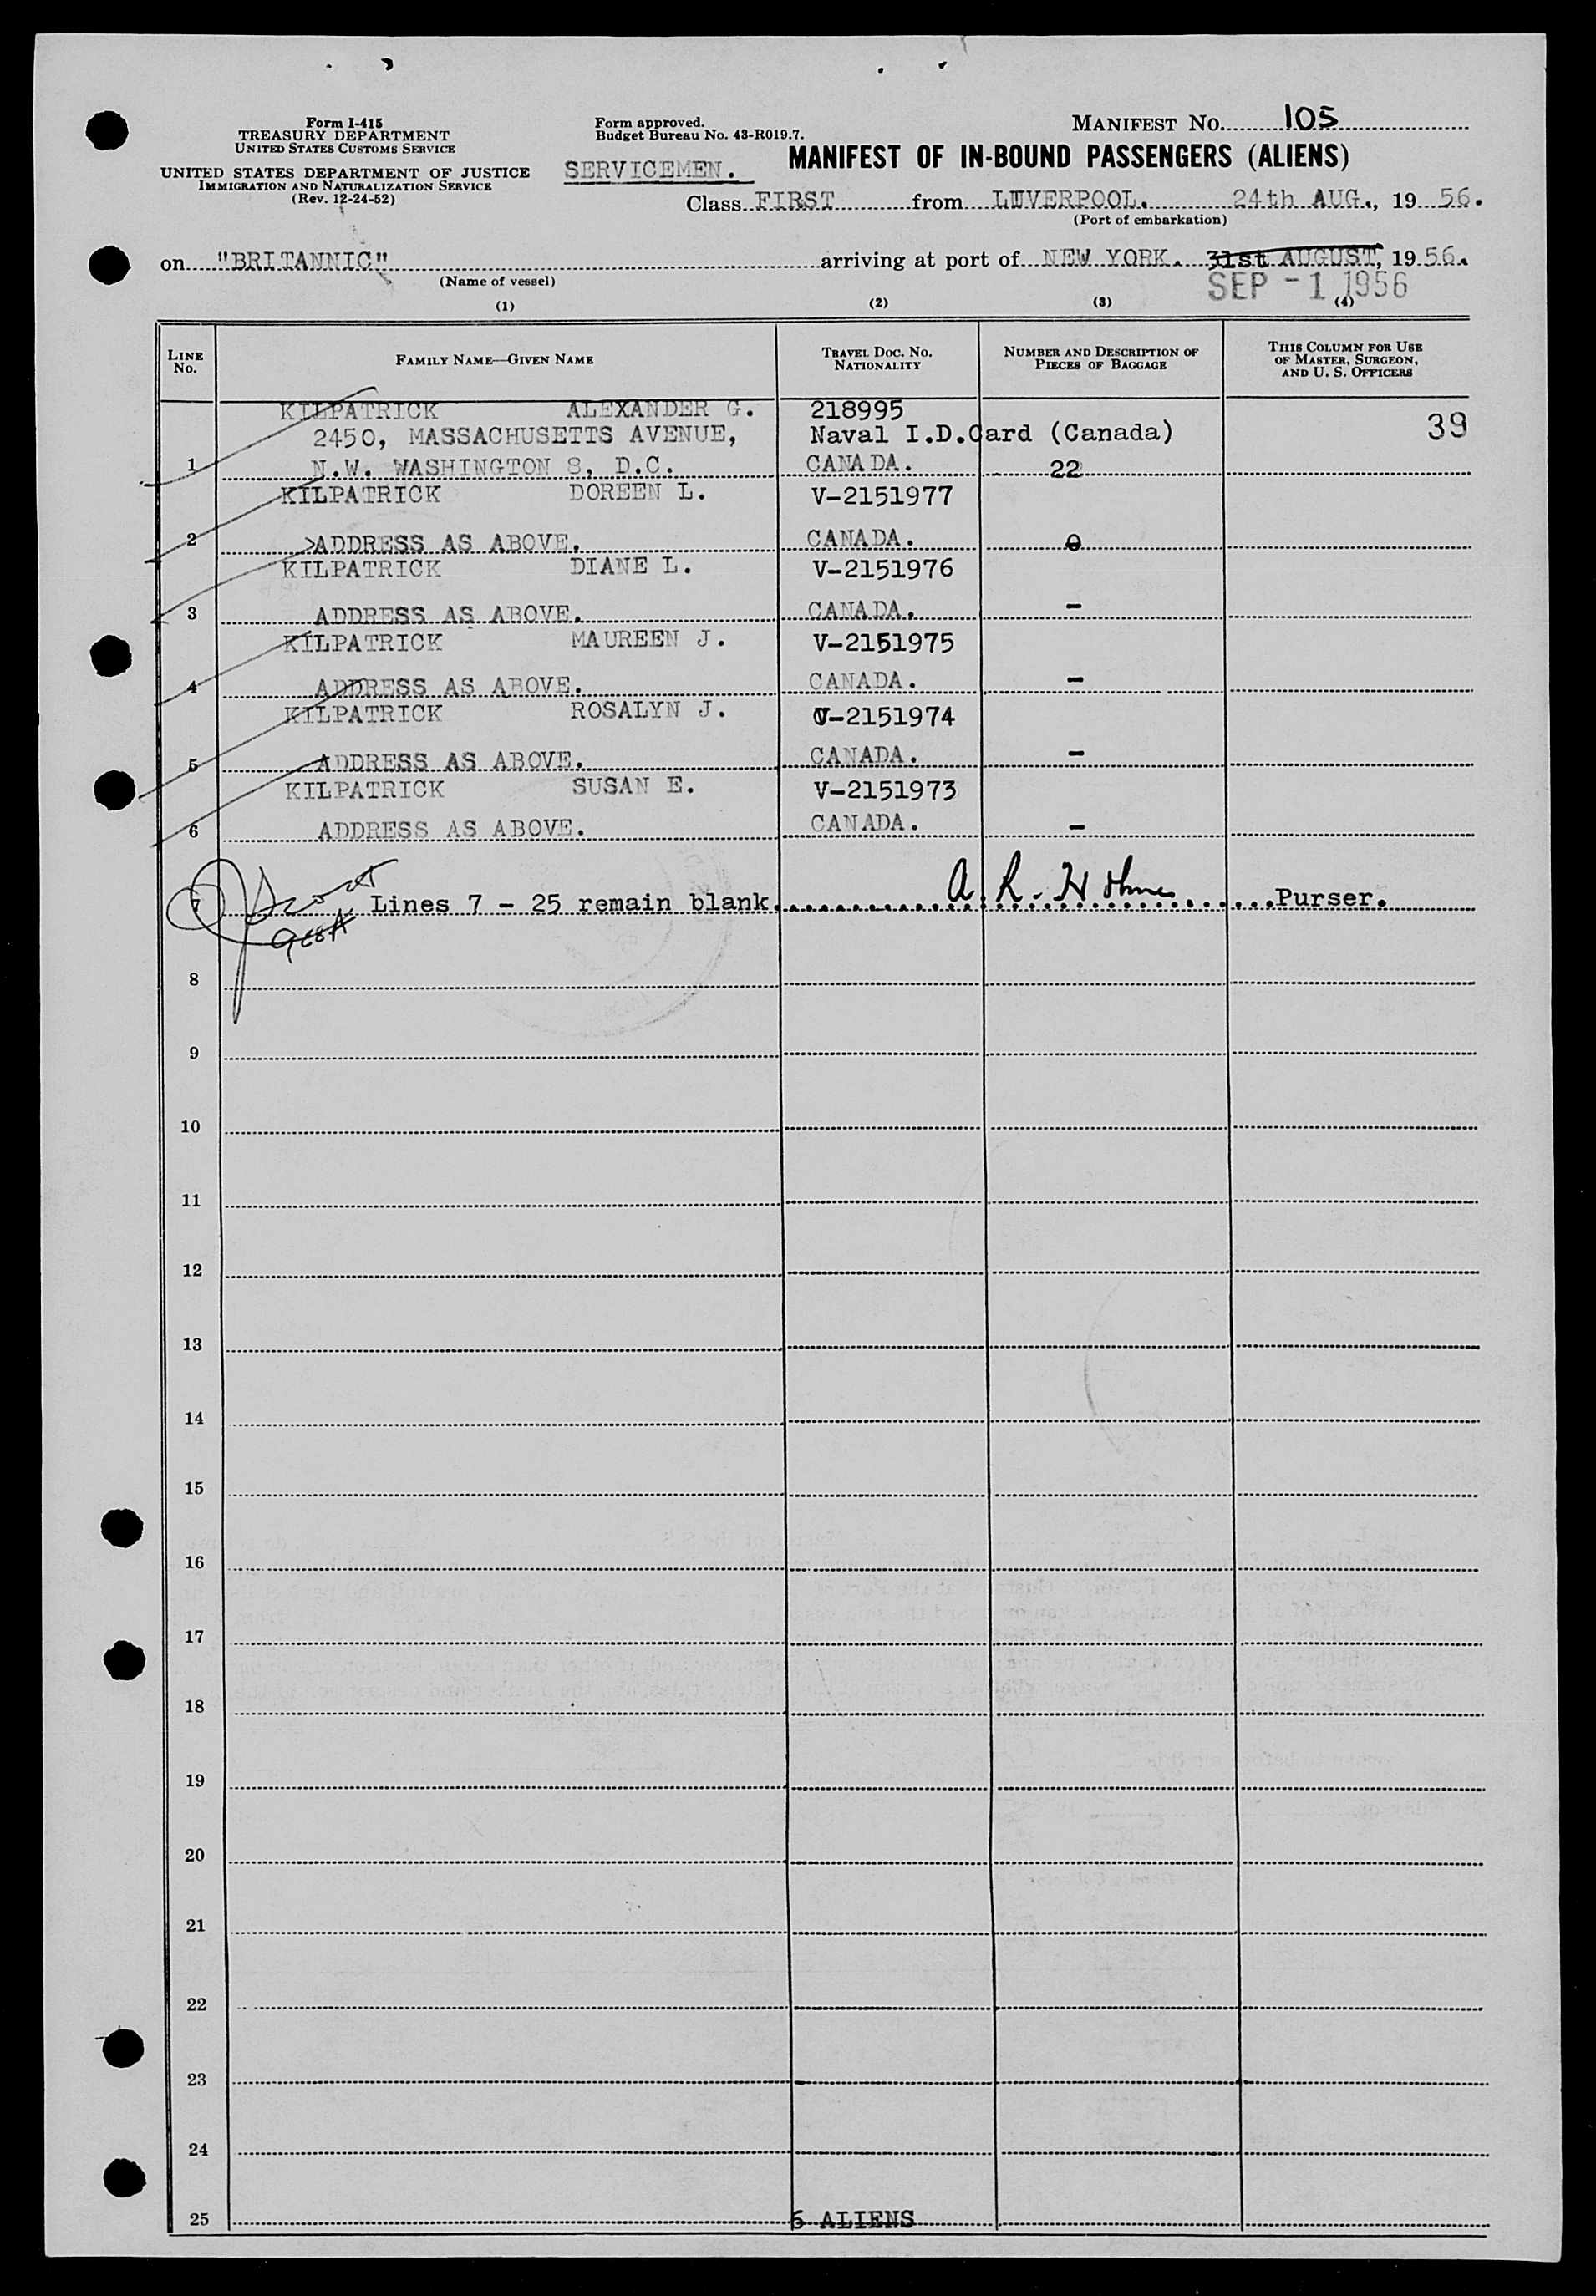 Form I-415
TREASURY DEPARTMENT
UNITED STATES CUSTOMS SERVICE
UNITED STATES DEPARTMENT OF JUSTICE
IMMIGRATION AND NATURALIZATION SERVICE
(Rev. 12-24-52)
Form approved.
Budget Bureau No. 43-R019.7.
MANIFEST NO. 105
SERVICEMEN. MANIFEST OF IN-BOUND PASSENGERS (ALIENS)
Class FIRST from LIVERPOOL. 24th AUG., 1956.
(Port of embarkation)
on "BRITANNIC" arriving at port of NEW YORK. 31st AUGUST, 1956.
(Name of vessel)
SEP -1 1956
(1) (2) (3) (4)
LINE NO. FAMILY NAME—GIVEN NAME TRAVEL DOC. NO. NATIONALITY NUMBER AND DESCRIPTION OF PIECES OF BAGGAGE THIS COLUMN FOR USE OF MASTER, SURGEON, AND U. S. OFFICERS
KILPATRICK ALEXANDER G. 218995
2450, MASSACHUSETTS AVENUE, Naval I.D.Card (Canada) 39
1 N.W. WASHINGTON 8, D.C. CANADA. 22
KILPATRICK DOREEN L. V-2151977
2 ADDRESS AS ABOVE. CANADA. 0
KILPATRICK DIANE L. V-2151976
3 ADDRESS AS ABOVE. CANADA. -
KILPATRICK MAUREEN J. V-2151975
4 ADDRESS AS ABOVE. CANADA. -
KILPATRICK ROSALYN J. V-2151974
5 ADDRESS AS ABOVE. CANADA. -
KILPATRICK SUSAN E. V-2151973
6 ADDRESS AS ABOVE. CANADA. -
7 Lines 7 - 25 remain blank. A. R. Holmes Purser.
8
9
10
11
12
13
14
15
16
17
18
19
20
21
22
23
24
25 6 ALIENS